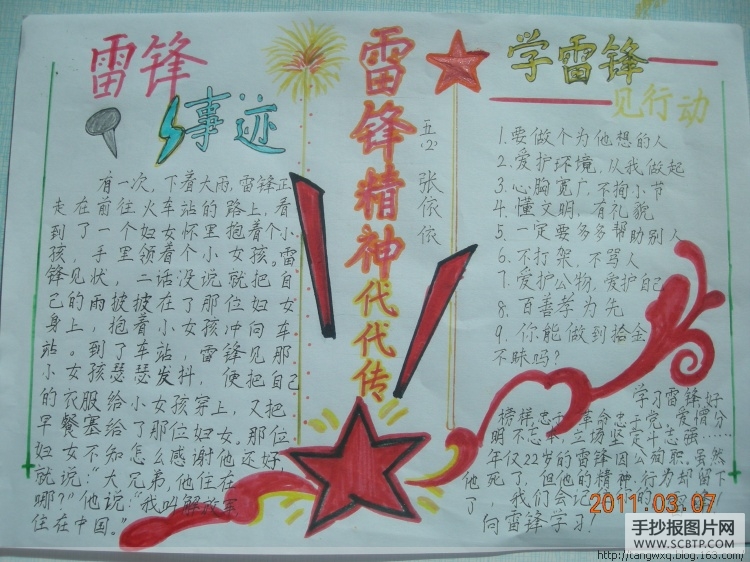 雷锋
事迹
有一次,下着大雨,雷锋正
走在前往火车站的路上,看
到了一个妇女怀里抱着个小
孩,手里领着个小女孩。雷
锋见状,二话没说就把自
己的雨披披在了那位妇女
身上,抱着小女孩冲向车
站。到了车站,雷锋见那
小女孩瑟瑟发抖,便把自己
的衣服给小女孩穿上,又把
早餐塞给了那位妇女,那位
妇女不知怎么感谢他还好,
就说:“大兄弟,他住在
哪?”他说:“我叫解放军
住在中国。”
雷锋精神代代传
五.(2) 张依依
学雷锋
见行动
1.要做个为他想的人
2.爱护环境,从我做起
3.心胸宽广不拘小节
4.懂文明,有礼貌
5.一定要多多帮助别人
6.不打架,不骂人
7.爱护公物,爱护自己
8.百善孝为先
9.你能做到拾金
不昧吗?
学习雷锋好
榜样忠于革命忠于党,爱憎分
明不忘本,立场坚定斗志强……
年仅22岁的雷锋因公殉职,虽然
他死了,但他的精神,行为却留下
了,我们会记
向雷锋学习!
2011.03.07
手抄报图片网
WWW.SCBTP.COM
http://tangwxq.blog.163.com/